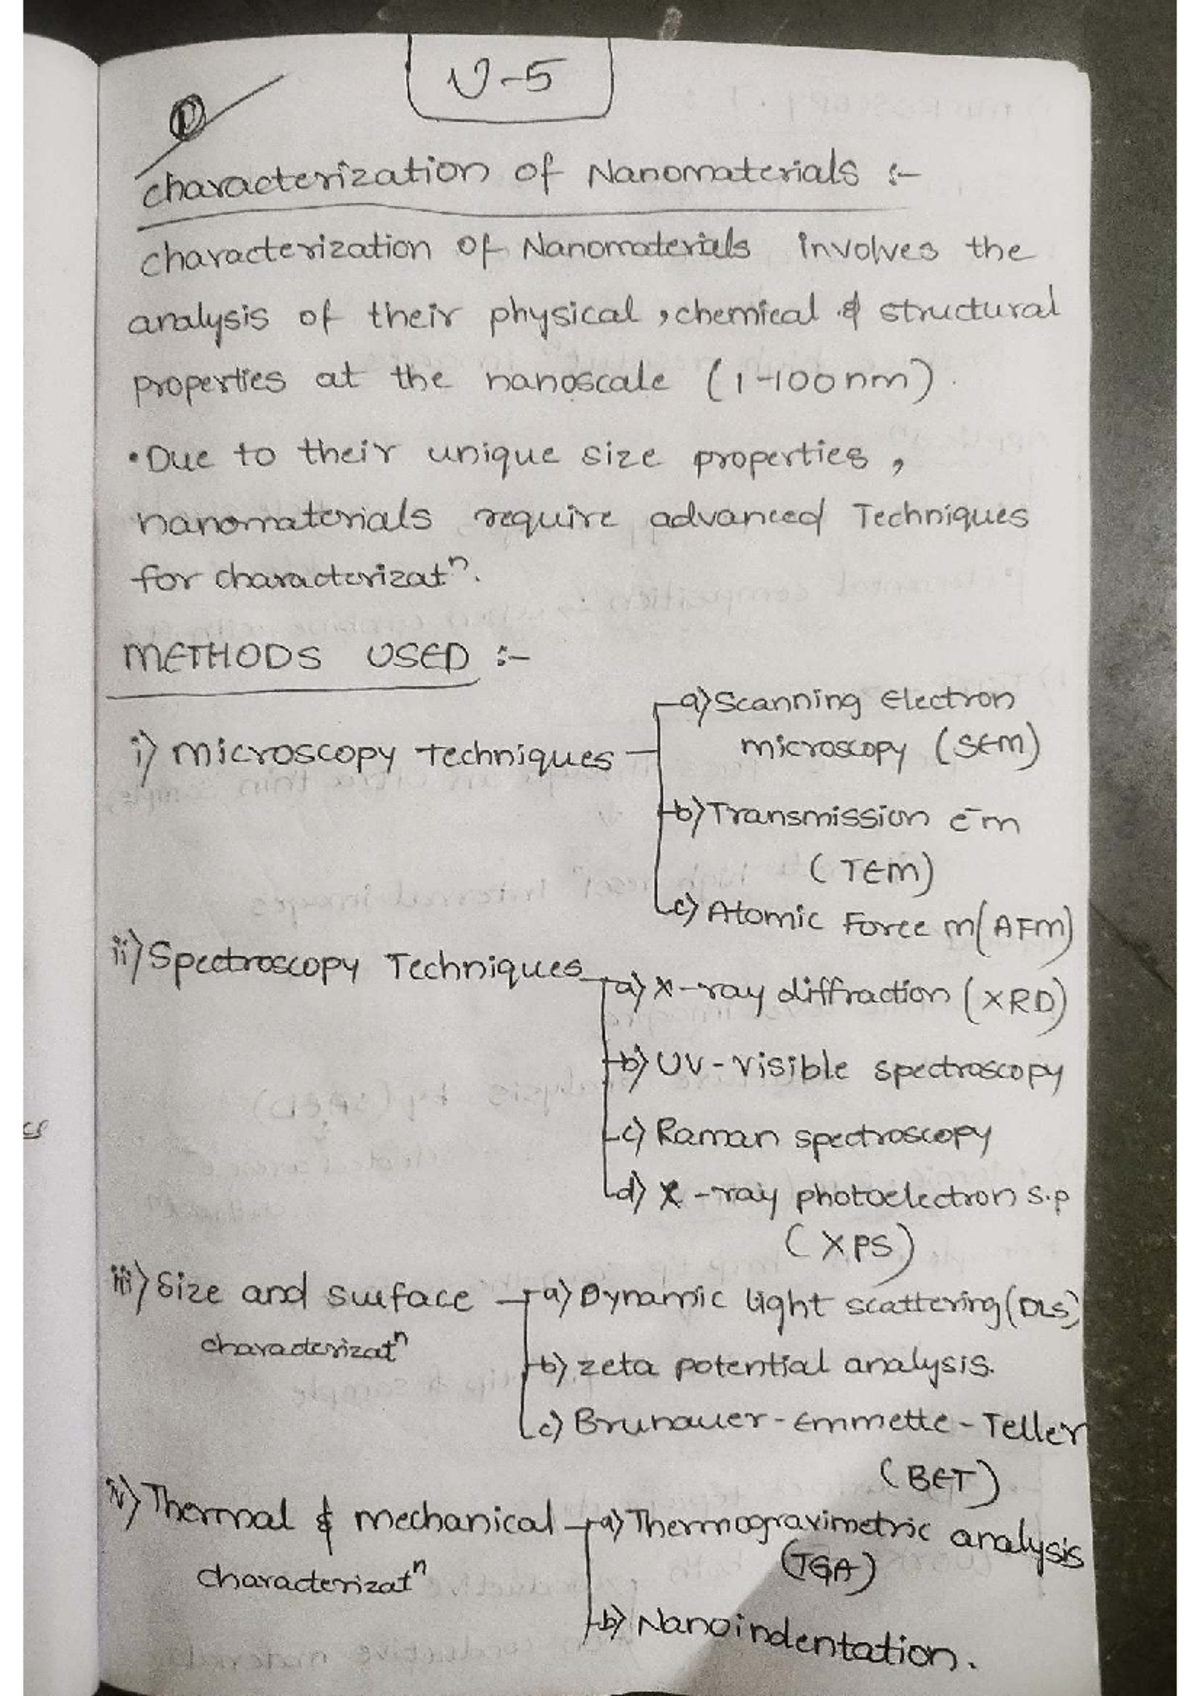 U-5
1)
characterization of Nanomaterials :-
characterization of Nanomaterials involves the
analysis of their physical, chemical & structural
properties at the nanoscale (1-100nm).
• Due to their unique size properties,
nanomaterials require advanced Techniques
for characterizatⁿ.
METHODS USED :-
i) microscopy techniques
a) Scanning Electron
microscopy (SEM)
b) Transmission E m
(TEM)
c) Atomic Force m (AFM)
ii) Spectroscopy Techniques
a) X-ray diffraction (XRD)
b) UV-visible spectroscopy
c) Raman spectroscopy
d) X-ray photoelectron s.p
(XPS)
iii) Size and surface
characterizatⁿ
a) Dynamic light scattering (DLS)
b) zeta potential analysis.
c) Brunauer-Emmette-Teller
(BET)
iv) Thermal & mechanical
characterizatⁿ
a) Thermogravimetric analysis
(TGA)
b) Nanoindentation.